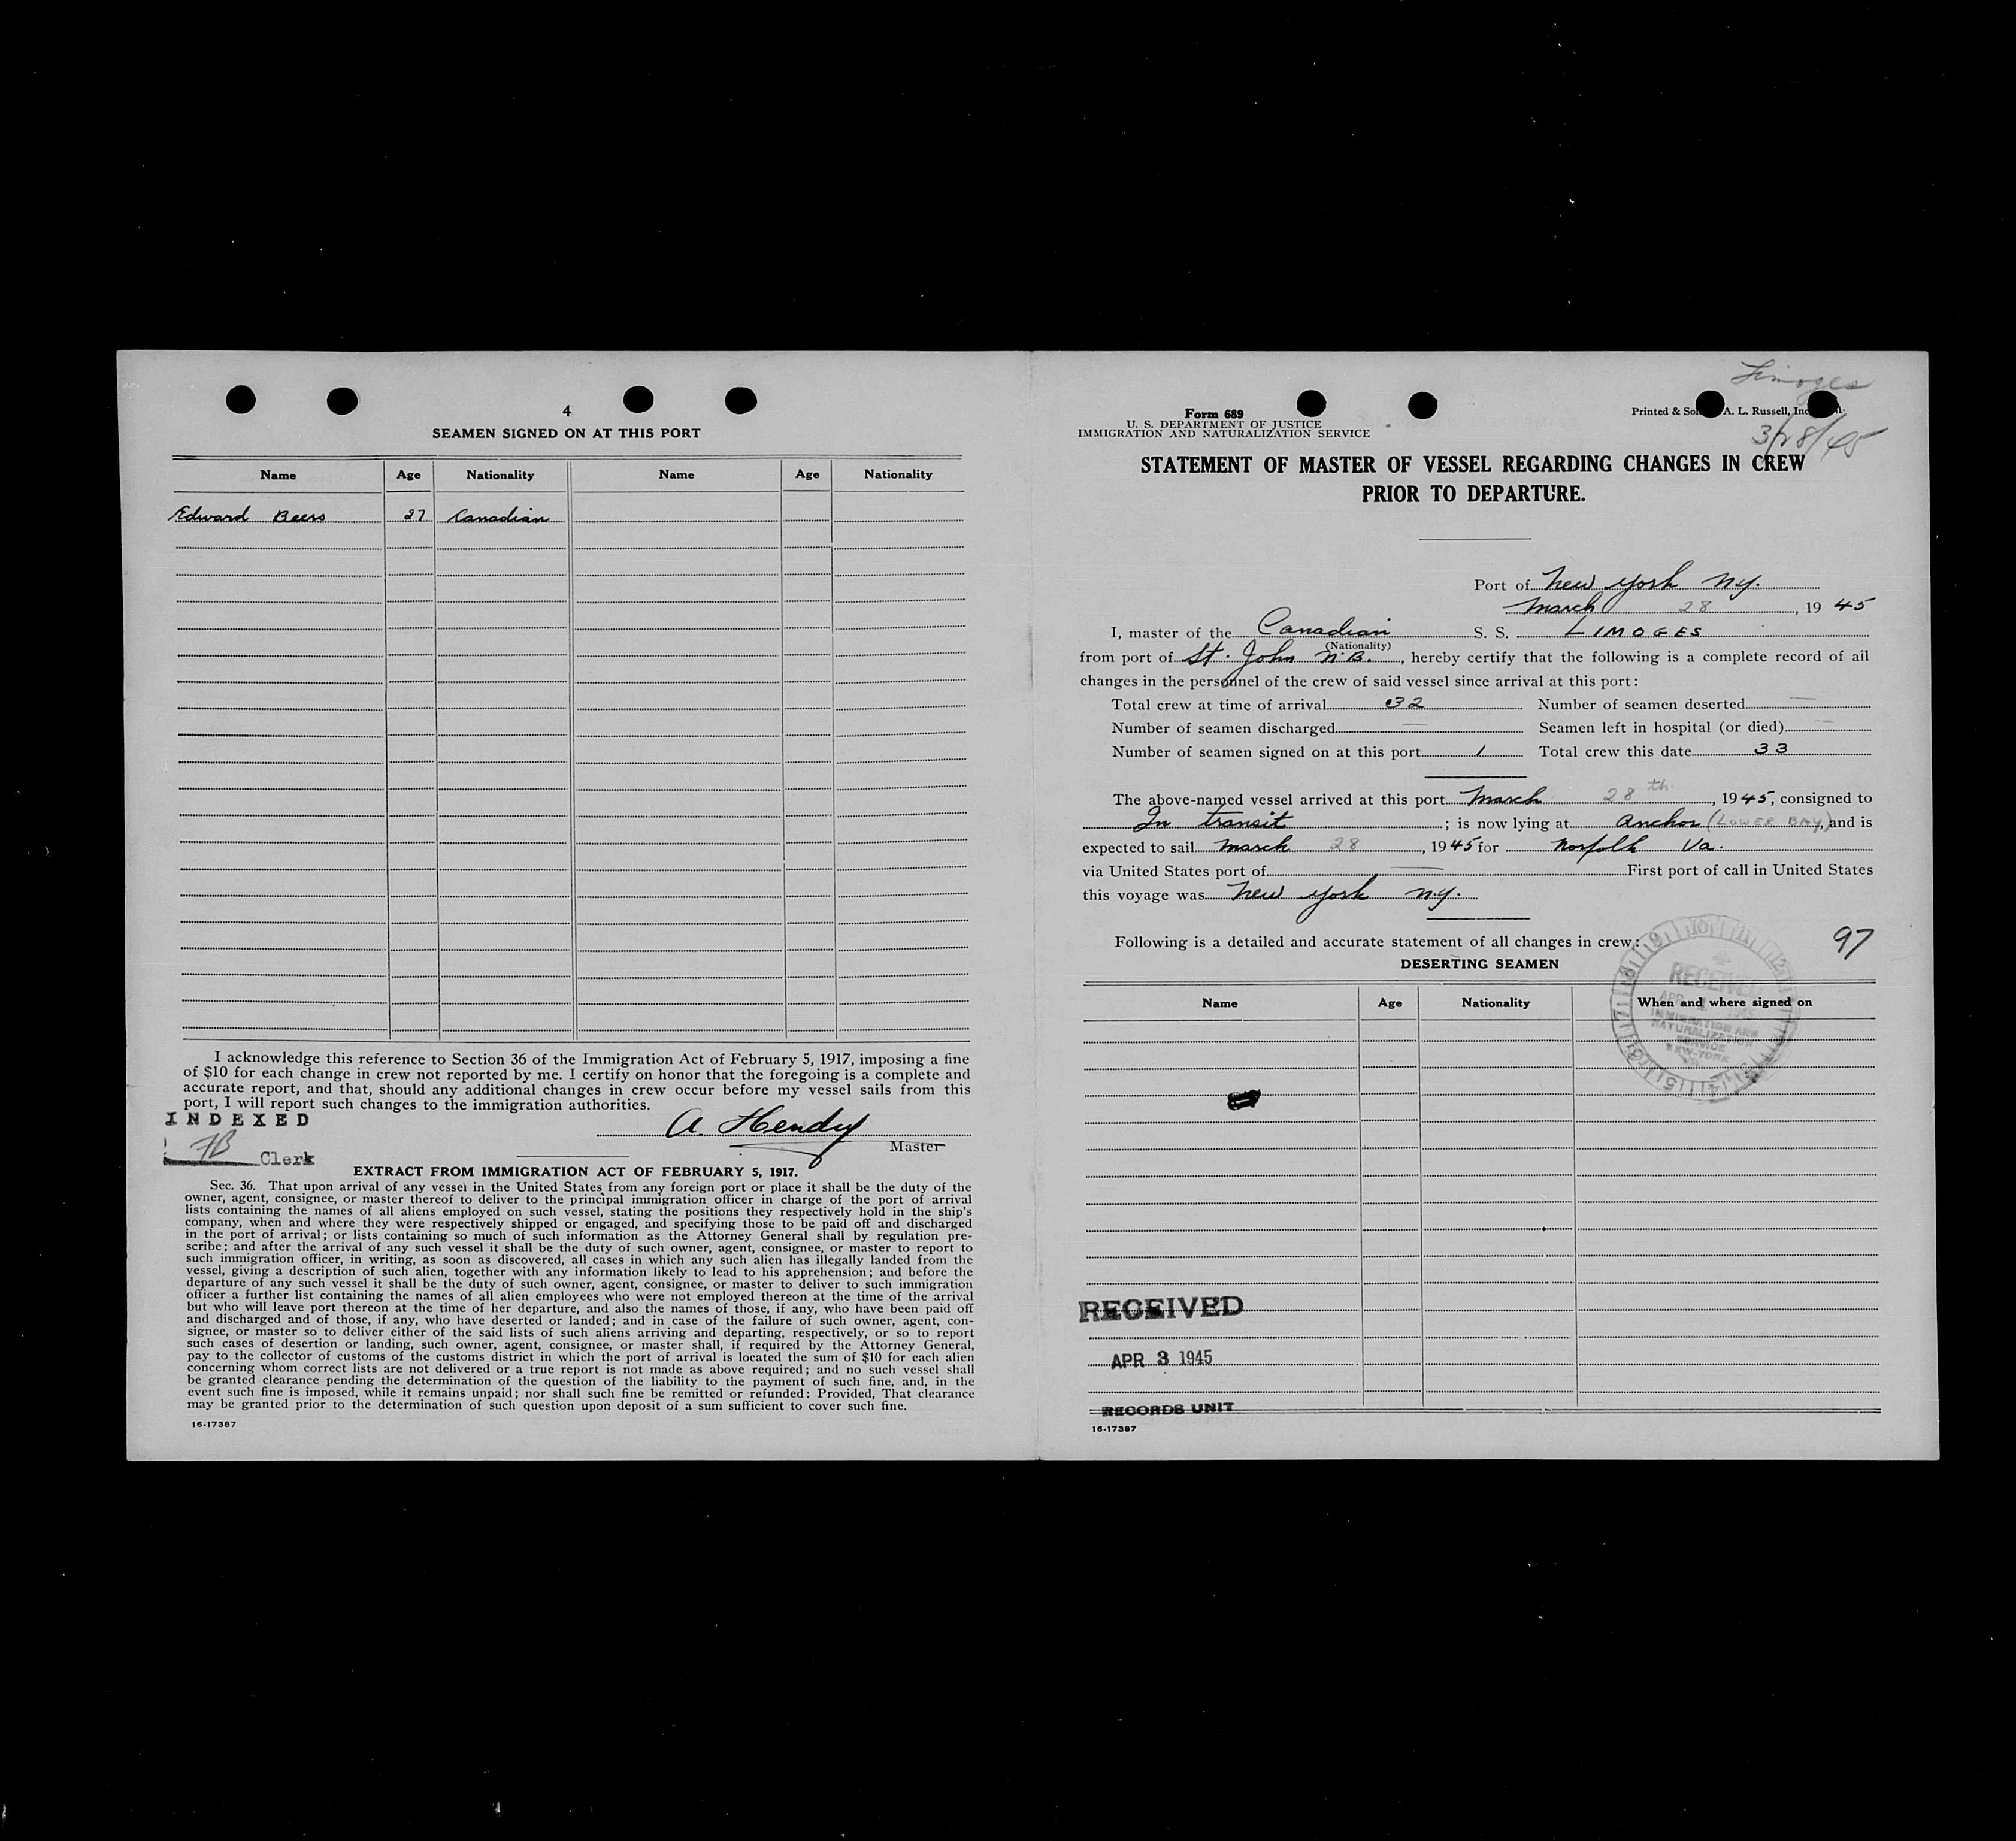 4
SEAMEN SIGNED ON AT THIS PORT
Name Age Nationality Name Age Nationality
Edward Beers 27 Canadian
I acknowledge this reference to Section 36 of the Immigration Act of February 5, 1917, imposing a fine
of $10 for each change in crew not reported by me. I certify on honor that the foregoing is a complete and
accurate report, and that, should any additional changes in crew occur before my vessel sails from this
port, I will report such changes to the immigration authorities.
INDEXED
A. Hendry
Master
FB Clerk
EXTRACT FROM IMMIGRATION ACT OF FEBRUARY 5, 1917.
Sec. 36. That upon arrival of any vessel in the United States from any foreign port or place it shall be the duty of the
owner, agent, consignee, or master thereof to deliver to the principal immigration officer in charge of the port of arrival
lists containing the names of all aliens employed on such vessel, stating the positions they respectively hold in the ship's
company, when and where they were respectively shipped or engaged, and specifying those to be paid off and discharged
in the port of arrival; or lists containing so much of such information as the Attorney General shall by regulation pre-
scribe; and after the arrival of any such vessel it shall be the duty of such owner, agent, consignee, or master to report to
such immigration officer, in writing, as soon as discovered, all cases in which any such alien has illegally landed from the
vessel, giving a description of such alien, together with any information likely to lead to his apprehension; and before the
departure of any such vessel it shall be the duty of such owner, agent, consignee, or master to deliver to such immigration
officer a further list containing the names of all alien employees who were not employed thereon at the time of the arrival
but who will leave port thereon at the time of her departure, and also the names of those, if any, who have been paid off
and discharged and of those, if any, who have deserted or landed; and in case of the failure of such owner, agent, con-
signee, or master so to deliver either of the said lists of such aliens arriving and departing, respectively, or so to report
such cases of desertion or landing, such owner, agent, consignee, or master shall, if required by the Attorney General,
pay to the collector of customs of the customs district in which the port of arrival is located the sum of $10 for each alien
concerning whom correct lists are not delivered or a true report is not made as above required; and no such vessel shall
be granted clearance pending the determination of the question of the liability to the payment of such fine, and, in the
event such fine is imposed, while it remains unpaid; nor shall such fine be remitted or refunded: Provided, That clearance
may be granted prior to the determination of such question upon deposit of a sum sufficient to cover such fine.
16-17387
Limoges
3/28/45
Form 689
U. S. DEPARTMENT OF JUSTICE
IMMIGRATION AND NATURALIZATION SERVICE
Printed & A. L. Russell,
STATEMENT OF MASTER OF VESSEL REGARDING CHANGES IN CREW
PRIOR TO DEPARTURE.
Port of New York N.Y.
March 28, 1945
I, master of the Canadian S. S. LIMOGES
(Nationality)
from port of St. John N.B., hereby certify that the following is a complete record of all
changes in the personnel of the crew of said vessel since arrival at this port:
Total crew at time of arrival 32 Number of seamen deserted —
Number of seamen discharged — Seamen left in hospital (or died) —
Number of seamen signed on at this port 1 Total crew this date 33
The above-named vessel arrived at this port March 28th, 1945, consigned to
In transit; is now lying at Anchor (LOWER BAY), and is
expected to sail March 28, 1945 for Norfolk Va.
via United States port of — First port of call in United States
this voyage was New York N.Y.
Following is a detailed and accurate statement of all changes in crew:
97
DESERTING SEAMEN
Name Age Nationality When and where signed on
RECEIVED
APR 1945
IMMIGRATION AND
NATURALIZATION
SERVICE
NEW YORK
RECEIVED
APR 3 1945
RECORDS UNIT
16-17387